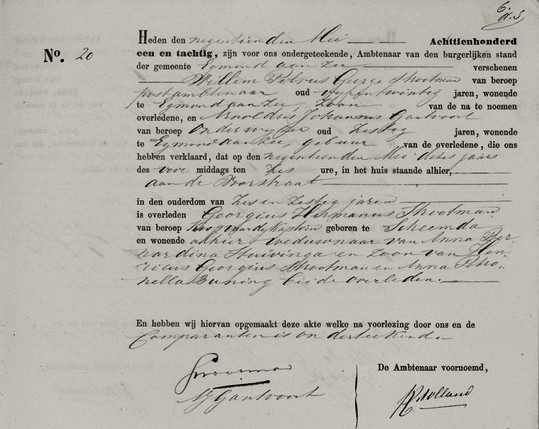 No. 20
Heden den negentienden Mei Achttienhonderd
een en tachtig, zijn voor ons ondergeteekende, Ambtenaar van den burgerlijken stand
der gemeente Egmond aan Zee verschenen
Willem Petrus George Strootman van beroep
postambtenaar oud jaren, wonende
te Egmond aan Zee, Zoon van de na te noemen
overledene, en Arnoldus Johannes Gantvoort
van beroep Onderwijzer oud Zestig jaren, wonende
te Egmond aan Zee, gebuur van de overledene, die ons
hebben verklaard, dat op den negentienden Mei dezes jaars
des voor middags ten Zes ure, in het huis staande alhier,
aan de Voorstraat
in den ouderdom van Zes en Zestig jaren
is overleden Georgius Hermanus Strootman
van beroep Koopvaardijkapitein geboren te Scheemda
en wonende alhier Weduwnaar van Anna Ber-
nardina Stuivinga en Zoon van Hen-
ricus Georgius Strootman en Anna
Buning beide overleden.
En hebben wij hiervan opgemaakt deze akte welke na voorlezing door ons en de
Comparanten is onderteekend.
De Ambtenaar voornoemd,
Strootman
Gantvoort